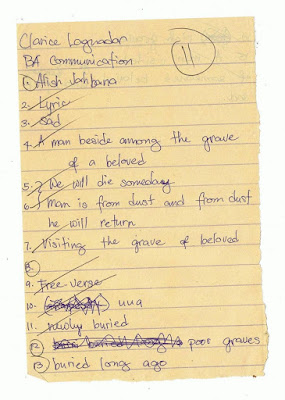 Clarice
BA Communication
11
1.
2. Lyric
3. Sad
4. A man beside among the grave
of a beloved
5. We will die someday
6. Man is from dust and from dust
he will return
7. Visiting the grave of beloved
8.
9. Free verse
10. uua
11. newly buried
12 poor graves
13 buried long ago